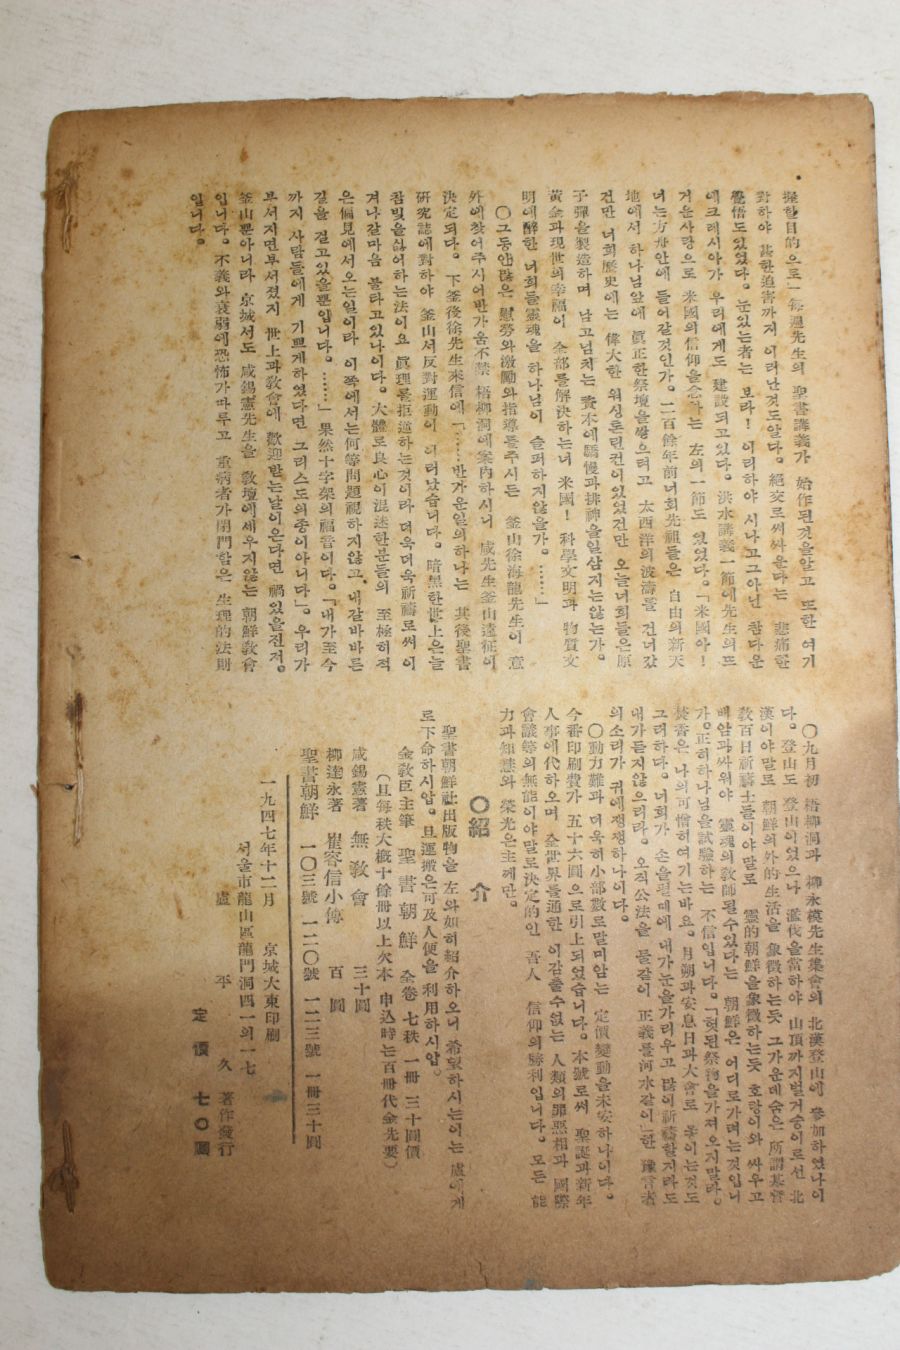 握할目的으로」每週先生의 聖書講義가 始作된것을알고 또한 여기
對하야 甚한迫害까지 이러난것도알다。絕交로써싸운다는 悲痛한
覺悟도있었다。눈있는者는 보라! 이리하야 시나고그아닌 참다운
에크레시아가 우리에게도 建設되고있다。洪水講義一節에先生의뜨
거운사랑으로 米國의信仰을念하는 左의一節도 있었다。「米國아!
너는方舟안에 들어갈것인가。二百餘年前너희先祖들은 自由의新天
地에서 하나님앞에 眞正한祭壇을쌓으려고 太西洋의波濤를 건너갔
건만 너희歷史에는 偉大한 워싱톤린컨이있었건만 오늘너희들은原
子彈을製造하며 남고넘치는 資本에驕慢과排神을일삼지는않는가。
黃金과現世의幸福이 全部를解決하는너 米國! 科學文明과 物質文
明에醉한 너희들靈魂을 하나님이 슬퍼하지않을가。……」
〇그동안많은 慰勞와激勵와指導를주시든 釜山徐海龍先生이 意
外에찾어주시어반가움不禁 梧柳洞에案內하시니 咸先生釜山遠征이
決定되다。下釜後徐先生來信에「……반가운일의하나는 其後聖書
硏究誌에對하야 釜山서反對運動이 이러났습니다。暗黑한世上은늘
참빛을싫어하는法이요 眞理를拒逆하는것이라 더욱더욱祈禱로써 이
겨나갈마음 불타고있나이다。大體로良心이混迷한분들의 至極히적
은偏見에서오는일이라 이쪽에서는何等問題視하지않고 내갈바바른
길을 걸고있을뿐입니다。……」果然十字架의福音이다。「내가至今
까지 사람들에게 기쁘게하였다면 그리스도의종이아니다」。우리가
부서지면부서졌지 世上과敎會에 歡迎받는날이온다면 禍있을진저。
釜山뿐아니라 京城서도 咸錫憲先生을 敎壇에세우지않는 朝鮮敎會
입니다。不義와衰弱에恐怖가따루고 重病者가閉門함은 生理的法則
입니다。
〇九月初 梧柳洞과 柳永模先生集會의 北漢登山에 參加하였나이
다。登山도 登山이었으나 濫伐을當하야 山頂까지벌거숭이로선 北
漢이야말로 朝鮮의外的生活을 象徵하는듯 그가운데숨은 所謂基督
敎百日祈禱士들이야말로 靈的朝鮮을象徵하는듯 호랑이와 싸우고
배암과싸워야 靈魂의敎師될수있다는 朝鮮은 어디로가려는것입니
가。正히하나님을試驗하는 不信입니다。「헛된祭物을가져오지말라。
焚香은 나의可憎히여기는바요。月朔과安息日과大會로 몽이는것도
그러하다。너희가 손을펼때에 내가눈을가리우고 많이祈禱할지라도
내가듣지않으리라。오직公法을 물같이 正義를河水같이」한 豫言者
의소리가 귀에쟁쟁하나이다。
〇動力難과 더욱히小部數로말미암는 定價變動을未安하나이다。
今番印刷費가 五十六圓으로引上되었습니다。本號로써 聖誕과新年
人事에代하오며 全世界를通한 이감출수없는 人類의罪惡相과 國際
會議等의無能이야말로決定的인 吾人 信仰의勝利입니다。모든 能
力과知慧와 榮光은主께만。
〇紹 介
聖書朝鮮社出版物을 左와如히紹介하오니 希望하시는이는 盧에게
로下命하시압。且運搬은可及人便을 利用하시압。
金敎臣主筆 聖書朝鮮 全卷七秩 一冊 三十圓價
(且每秩大槪十餘冊以上欠本 申込時는百冊代金先要)
咸錫憲著 無敎會 三十圓
柳達永著 崔容信小傳 百圓
聖書朝鮮 一〇三號 一二〇號 一二三號 一冊三十圓
一九四七年十二月 京城大東印刷
서울市龍山區龍門洞四一의一七
盧平久 著作發行
定價 七〇圓